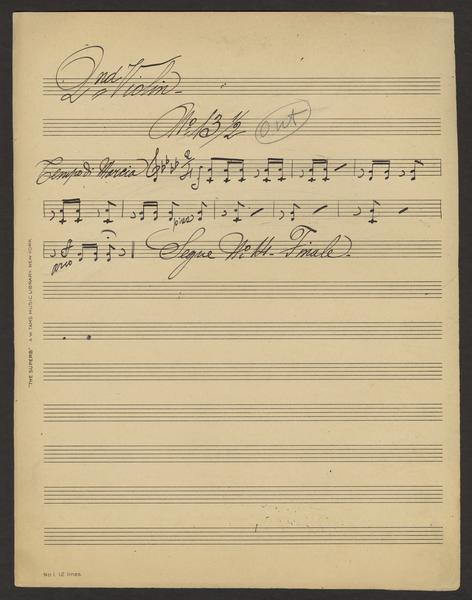 2nd Violin
No. 13 1/2 Out
Tempo di Marcia 2/4
pizz
arco Segue No. 14 - Finale.
"THE SUPERB" A.W. TAMS MUSIC LIBRARY, NEW YORK.
No 1. 12 lines.